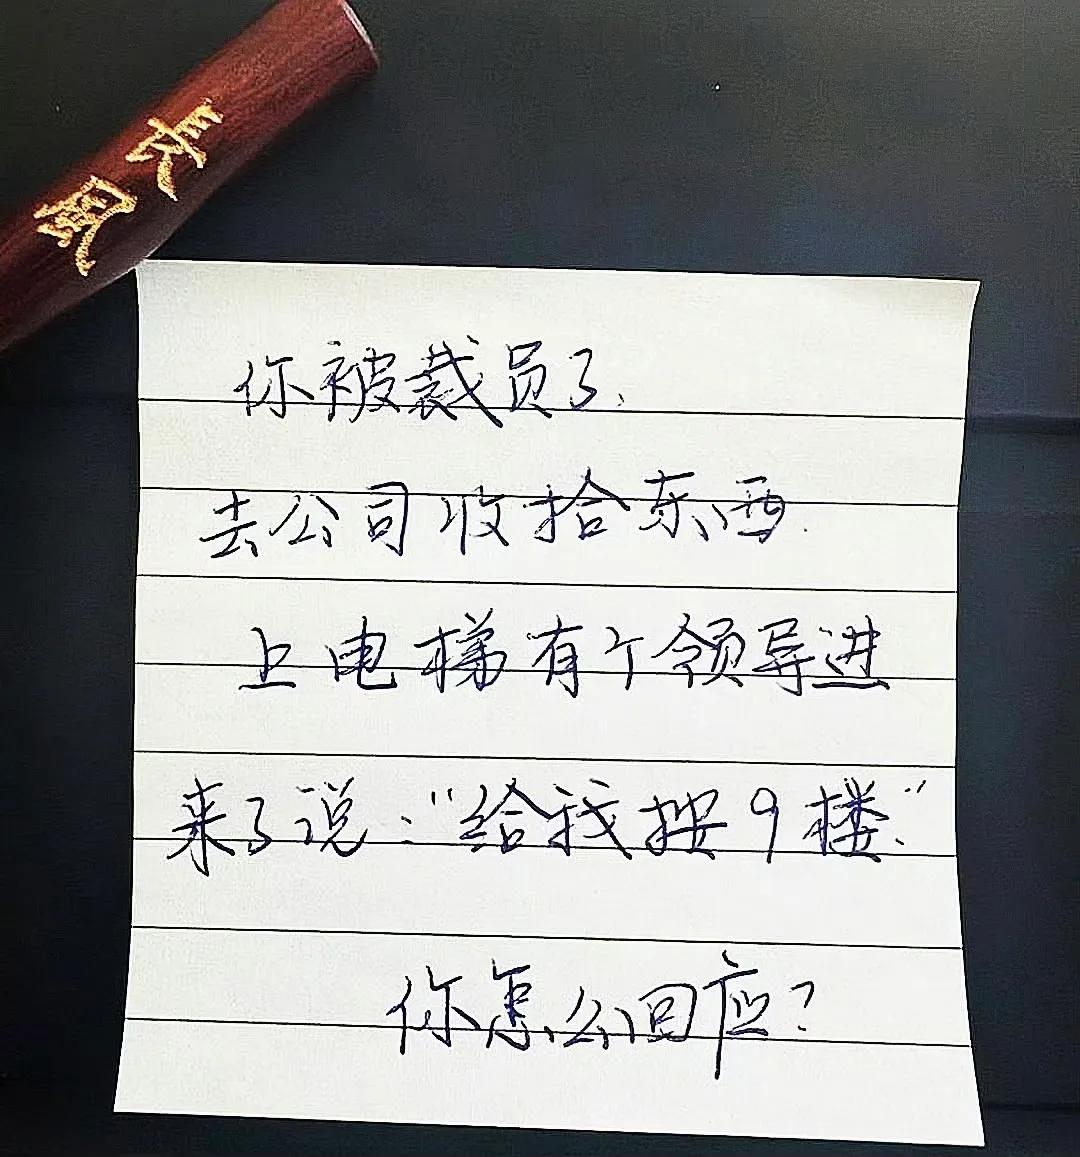 长风
你被裁员了.
去公司收拾东西.
上电梯有个领导进
来了说:“给我按9楼.”
你怎么回应?